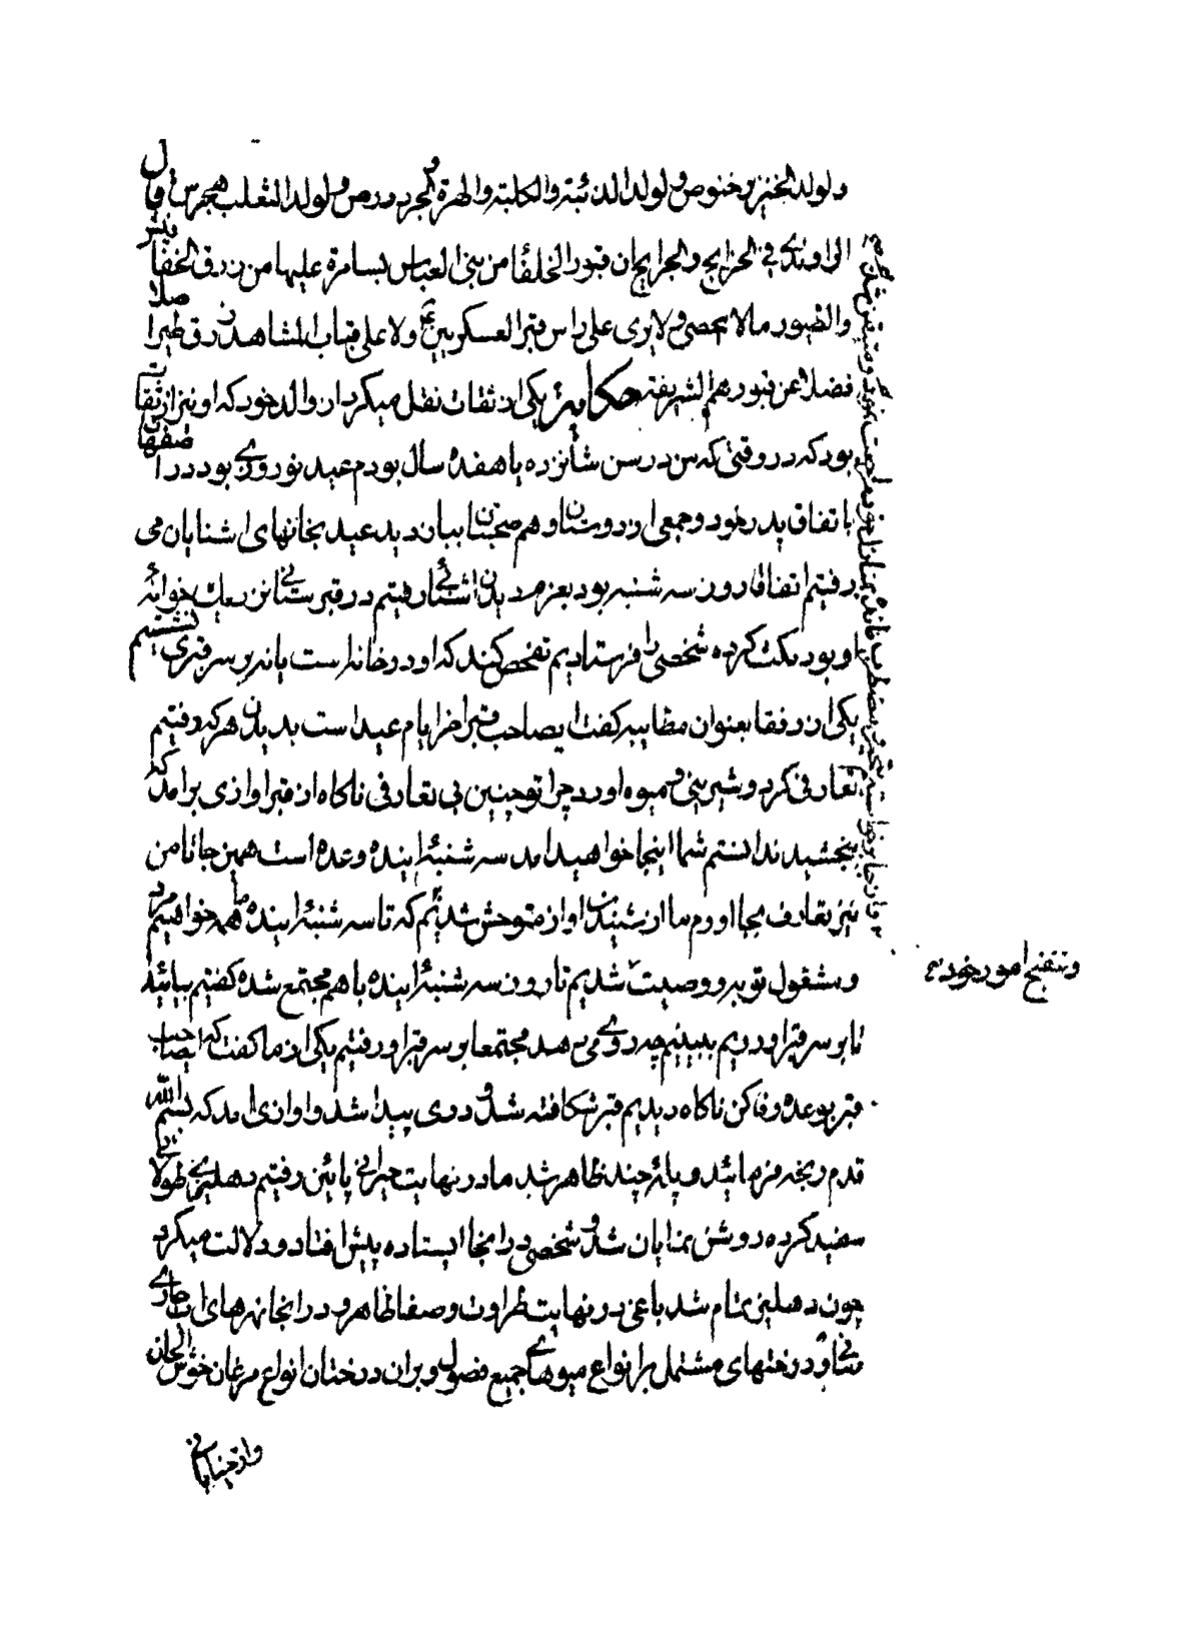 ولولد الخنزير خنوص ولولد الذئبة والكلبة والهرة والجرد درص ولولد الثعلب هجرس قال
الراوندي في الخرايج والجرايح ان قبور الخلفا من بنى العباس بسامرة عليها من زرق الخفافيش
والطيور ما لا يحصى ولا يرى على راس قبر العسكريين ع ولا على قباب المشاهد زرق طير اصلا
فضلا عن قبورهم الشريفة حكاية يكى از ثقات نقل ميكرد از والد خود كه او نيز از ثقات
بود كه در وقتى كه من در سن شانزده يا هفده سال بودم عيد نوروزى بود در اصفهان
باتفاق پدر خود و جمعى از دوستان و هم صحبتان بباز ديد عيد بخانهاى اشنايان مى
رفتيم اتفاقا روز سه شنبه بود بعزم ديدن اشنائى رفتيم در قبرستانى نزديك خوانه
او بود مكث كرده شخصى را فرستاديم تفحص كند كه او در خانه است يا نه بر سر قبرى نشستيم
يكى از رفقا بعنوان مطايبه كفت ايصاحب قبر اخر ايام عيد است بديدن هر كه رفتيم
تعارفى كرد و شيرينى و ميوه اورد چرا تو چنين بى تعارفى ناكاه از قبر اوازى برامد كه
ببخشيد ندانستم شما اينجا خواهيد امد سه شنبهٔ اينده وعده است همين جا تا من
نيز تعارف بجا اورم ما از شنيدن اواز متوحش شديم كه تا سه شنبهٔ اينده ما همه خواهيم مرد
و مشغول توبه و وصيت شديم تا روز سه شنبهٔ اينده با هم مجتمع شده كفتيم بيائيد
تا بر سر قبر او رويم ببينيم چه روى مى دهد مجتمعا بر سر قبر او رفتيم يكى از ما كفت كه ايصاحب
قبر بوعده وفا كن ناكاه ديديم قبر شكافته شد و درى پيدا شد و اوازى امد كه بسم الله
قدم رنجه فرمائيد و پلهٔ چند ظاهر شد ما در نهايت حيرانى پائين رفتيم دهليزى طولانى
سفيد كرده روشن نمايان شد و شخصى در انجا ايستاده پيش افتاد و دلالت ميكرد
چون دهليز تمام شد باغى در نهايت طراوت و صفا ظاهر و در انجا نهرهاى اب جارى
و درختهاى مشتمل بر انواع ميوهاى جميع فصول و بران درختان انواع مرغان خوش الحان
واز خيابانى
وتنقيح امور خود م